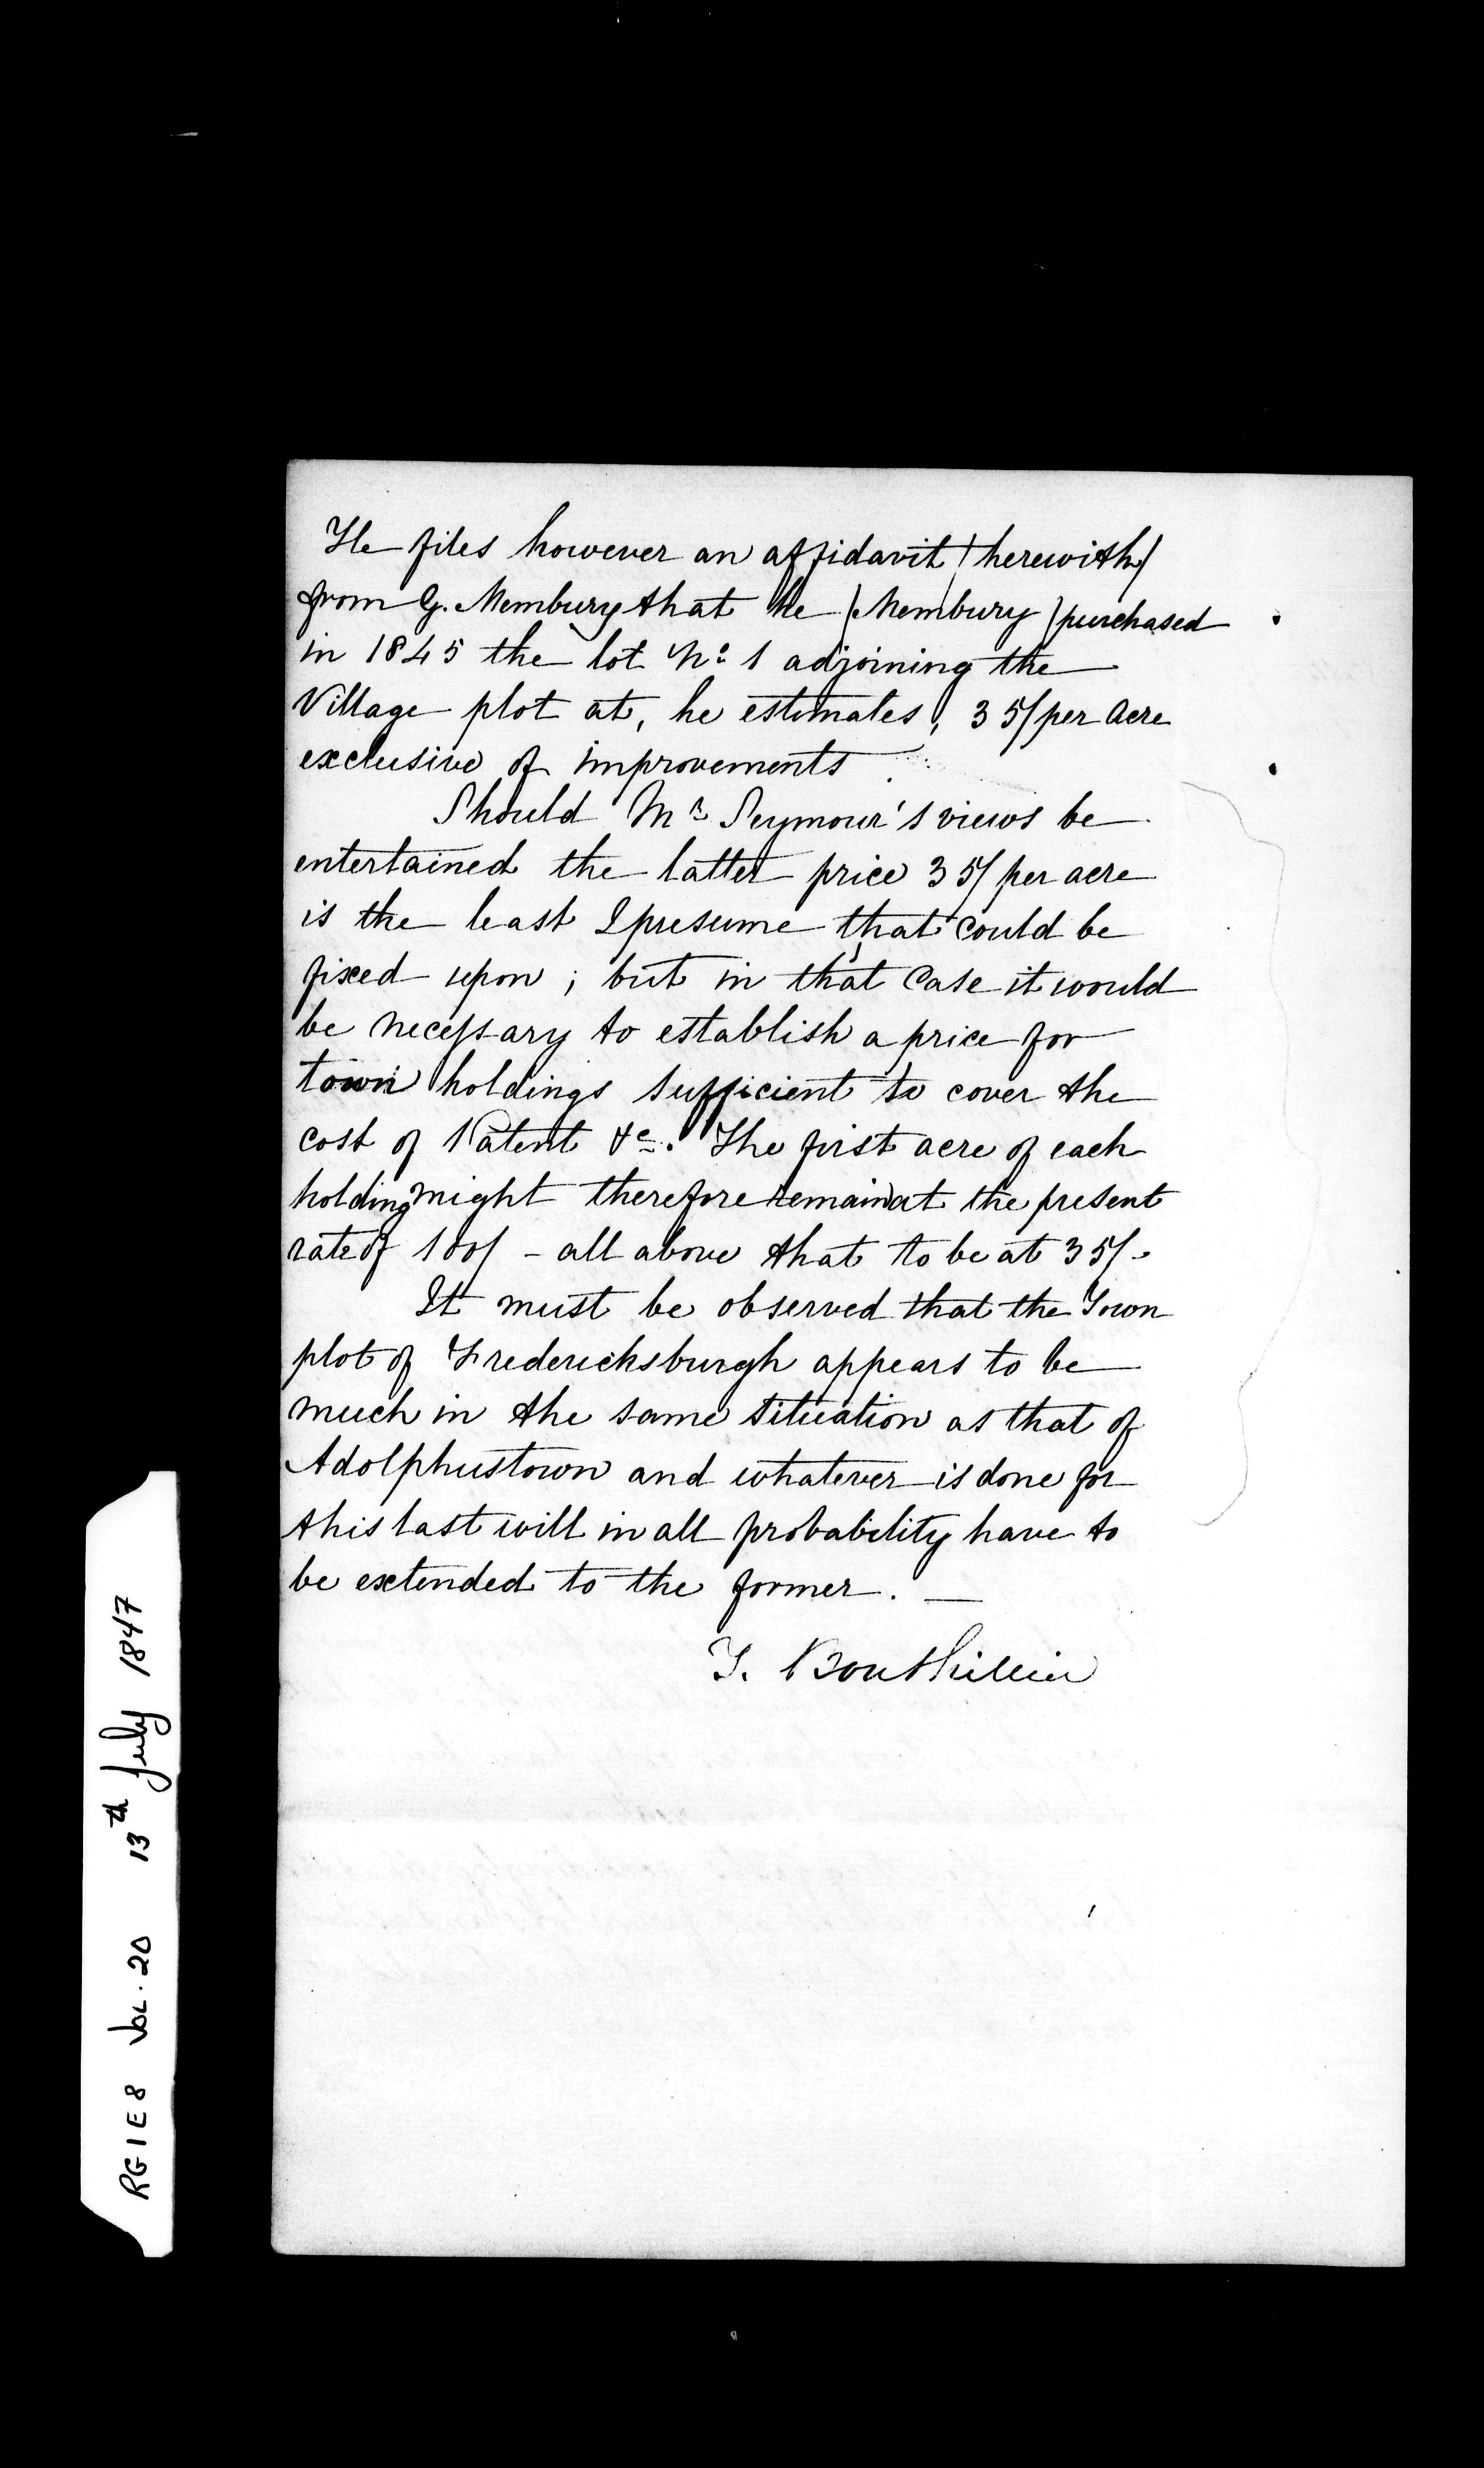 He files however an affidavit (herewith)
from G. Membury that he (Membury) purchased
in 1845 the lot No. 1 adjoining the
Village plot at, he estimates, 35/ per Acre
exclusive of improvements.
Should Mr Seymour's views be
entertained the latter price 35/ per acre
is the least I presume that could be
fixed upon; but in that Case it would
be necessary to establish a price for
town holdings sufficient to cover the
cost of Patent &c. The first acre of each
holding might therefore remain at the present
rate of 100/ - all above that to be at 35/-
It must be observed that the Town
plot of Fredericksburgh appears to be
much in the same situation as that of
Adolphustown and whatever is done for
this last will in all probability have to
be extended to the former. —
T. Bouthillier
RG1E8 Vol. 20 13th July 1847